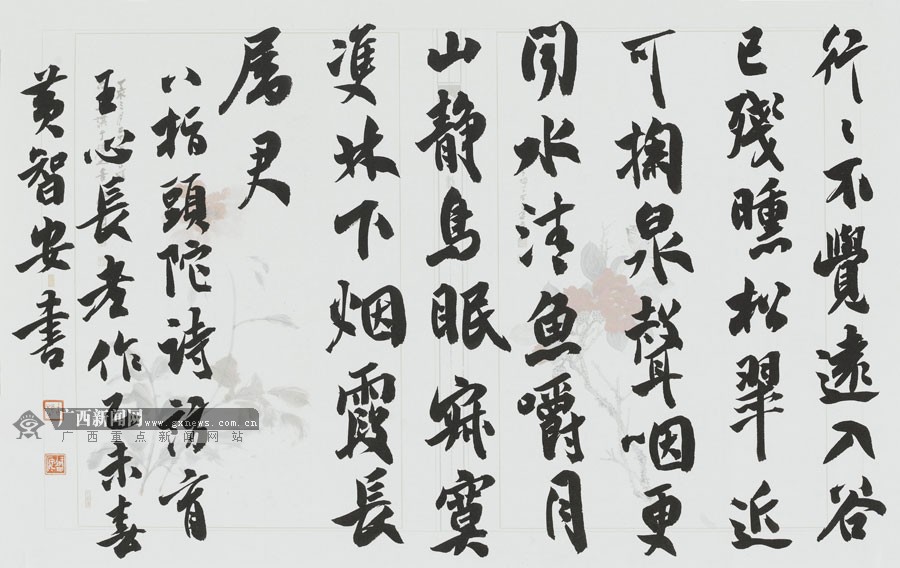 行〻不覺遠入谷
已殘曛松翠近
可掬泉聲咽更
聞水清魚嚼月
山靜鳥眠寂寞
雙林下烟霞長
属君
八指頭陀詩訪育
王心長老作未春
黃智安書
广西新闻网
www.gxnews.com.cn
广西重点新闻网站